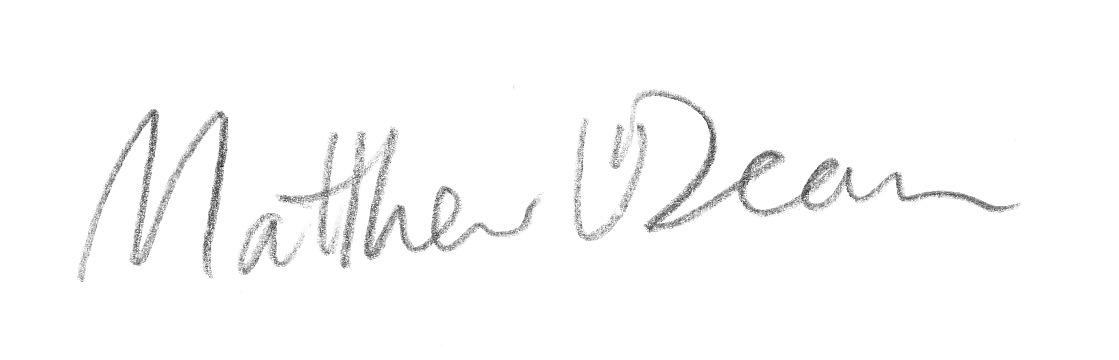 Matthew O'Dean